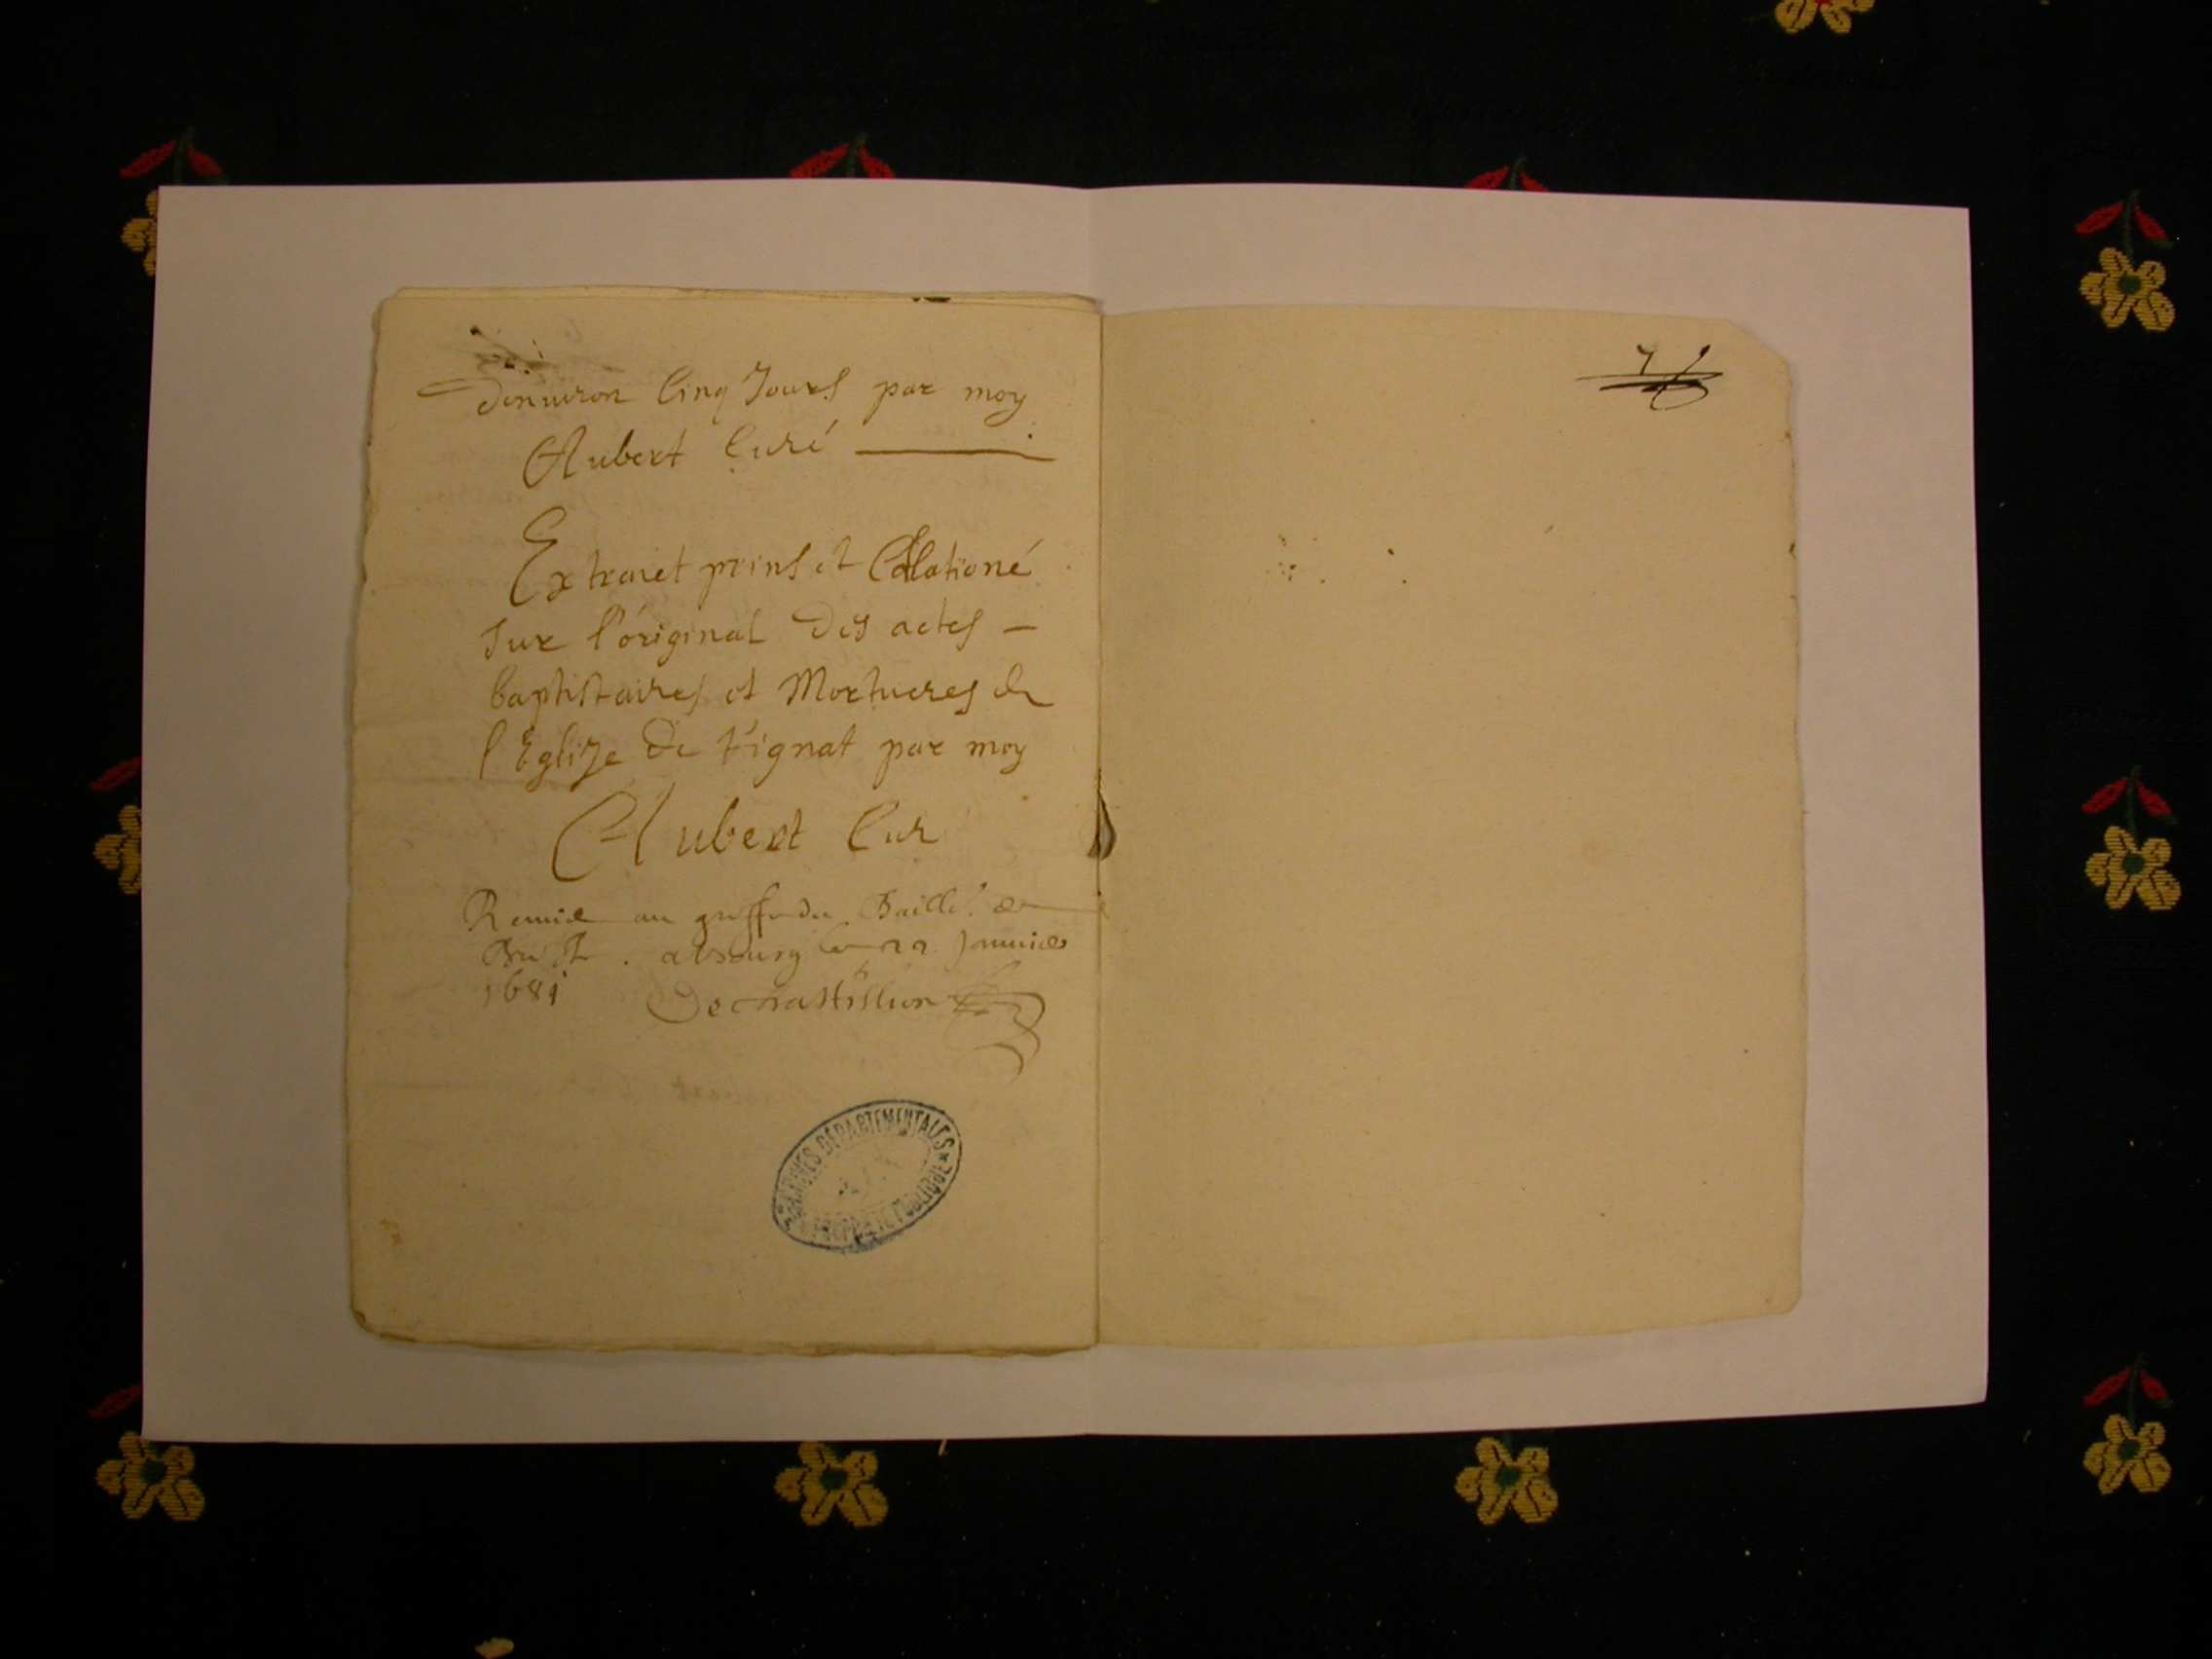 denuiron Cinq Jours par moy
Aubert Curé
Extraict prins et Collationé
sur l'original des actes
baptistaires et Mortueres de
l'Eglize de Vignat par moy
Aubert Cur
Remise au greffe du Bailli. de
abourg le 22 Januier
1681 Dechastillon
ARCHIVES DÉPARTEMENTALES
PROPRIÉTÉ PUBLIQUE